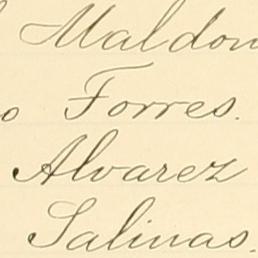 Maldon
o Torres.
Alvarez
Salinas.